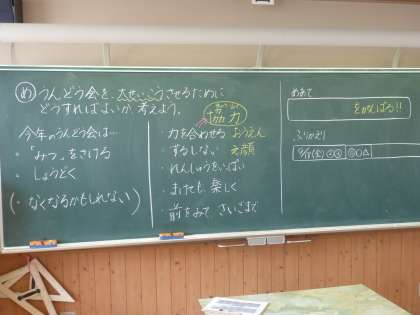 め うんどう会を 大せいこうさせるために
どうすればよいか 考えよう。
今年のうんどう会は…
・「みつ」をさける
・しょうどく
(・なくなるかもしれない)
きょうりょく
協力
・力を合わせる おうえん
・ずるしない 笑顔
・れんしゅうをいっぱい
・まけても、楽しく
・前をみて、さいごまで
めあて
をがんばる!!
ふりかえり